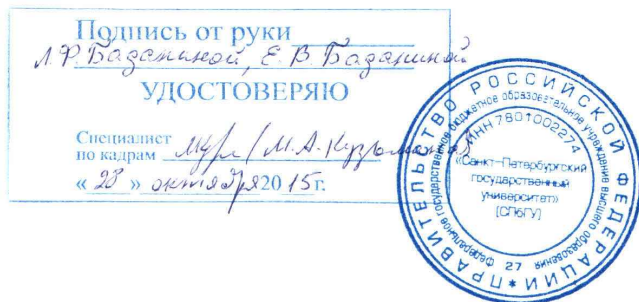 Подпись от руки
Л.Ф. Бадановой, Е.В. Бадановой
УДОСТОВЕРЯЮ
Специалист
по кадрам (М.А. Кузьмина)
« 28 » октября 2015 г.
ПРАВИТЕЛЬСТВО РОССИЙСКОЙ ФЕДЕРАЦИИ *
Федеральное государственное бюджетное образовательное учреждение высшего образования
ИНН 7801002274
«Санкт-Петербургский
государственный
университет»
(СПбГУ)
27